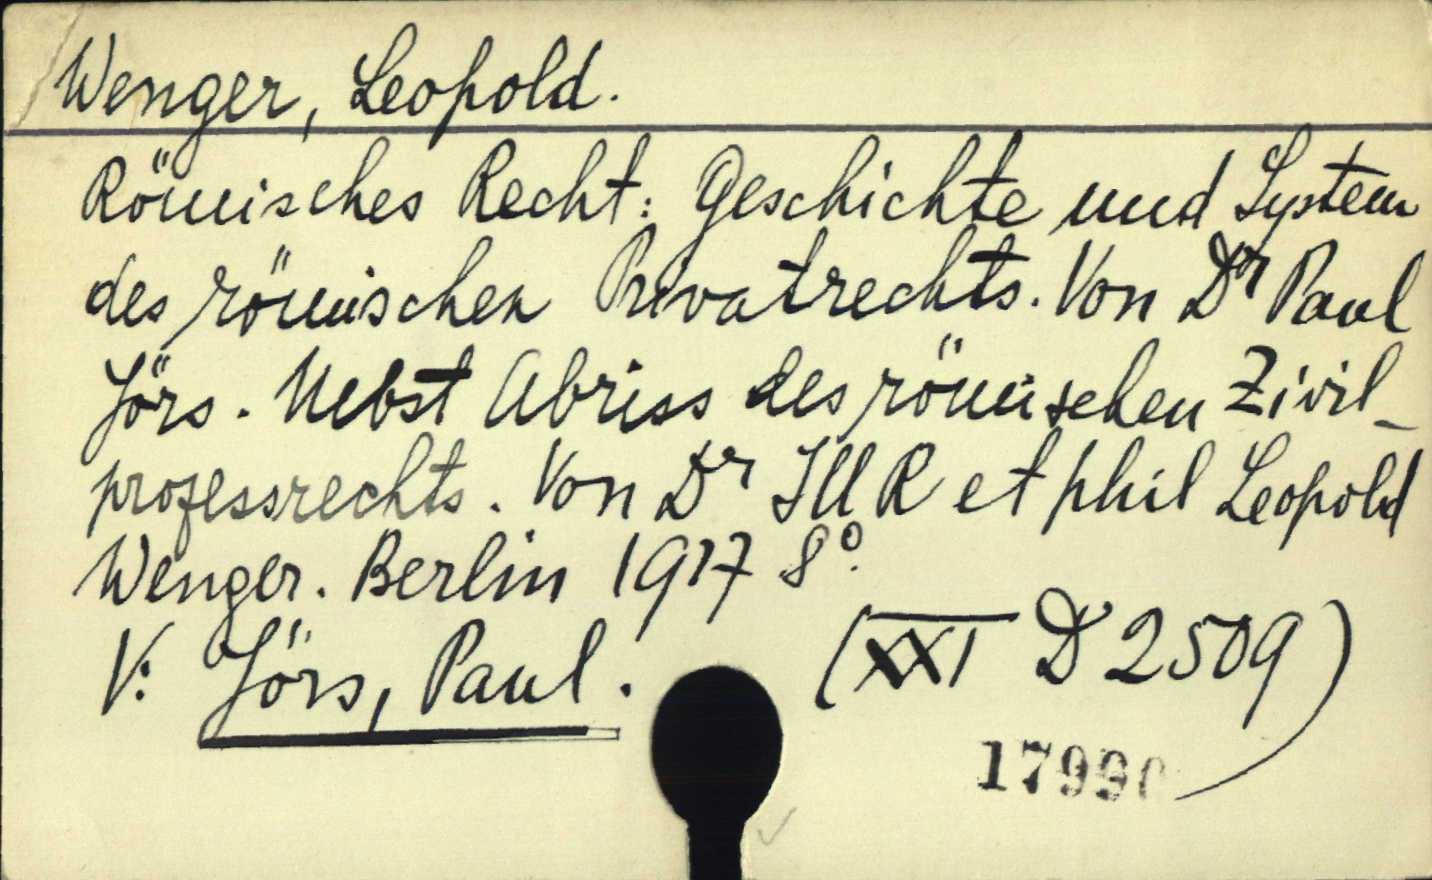 Wenger, Leopold.
Römisches Recht: Geschichte und System
des römischen Privatrechts. Von Dr Paul
Jörs. Nebst Abriss des römischen Zivil-
professrechts. Von Dr IUR et phil Leopold
Wenger. Berlin 1917 8º.
V: Jörs, Paul.
(XXI D 2509)